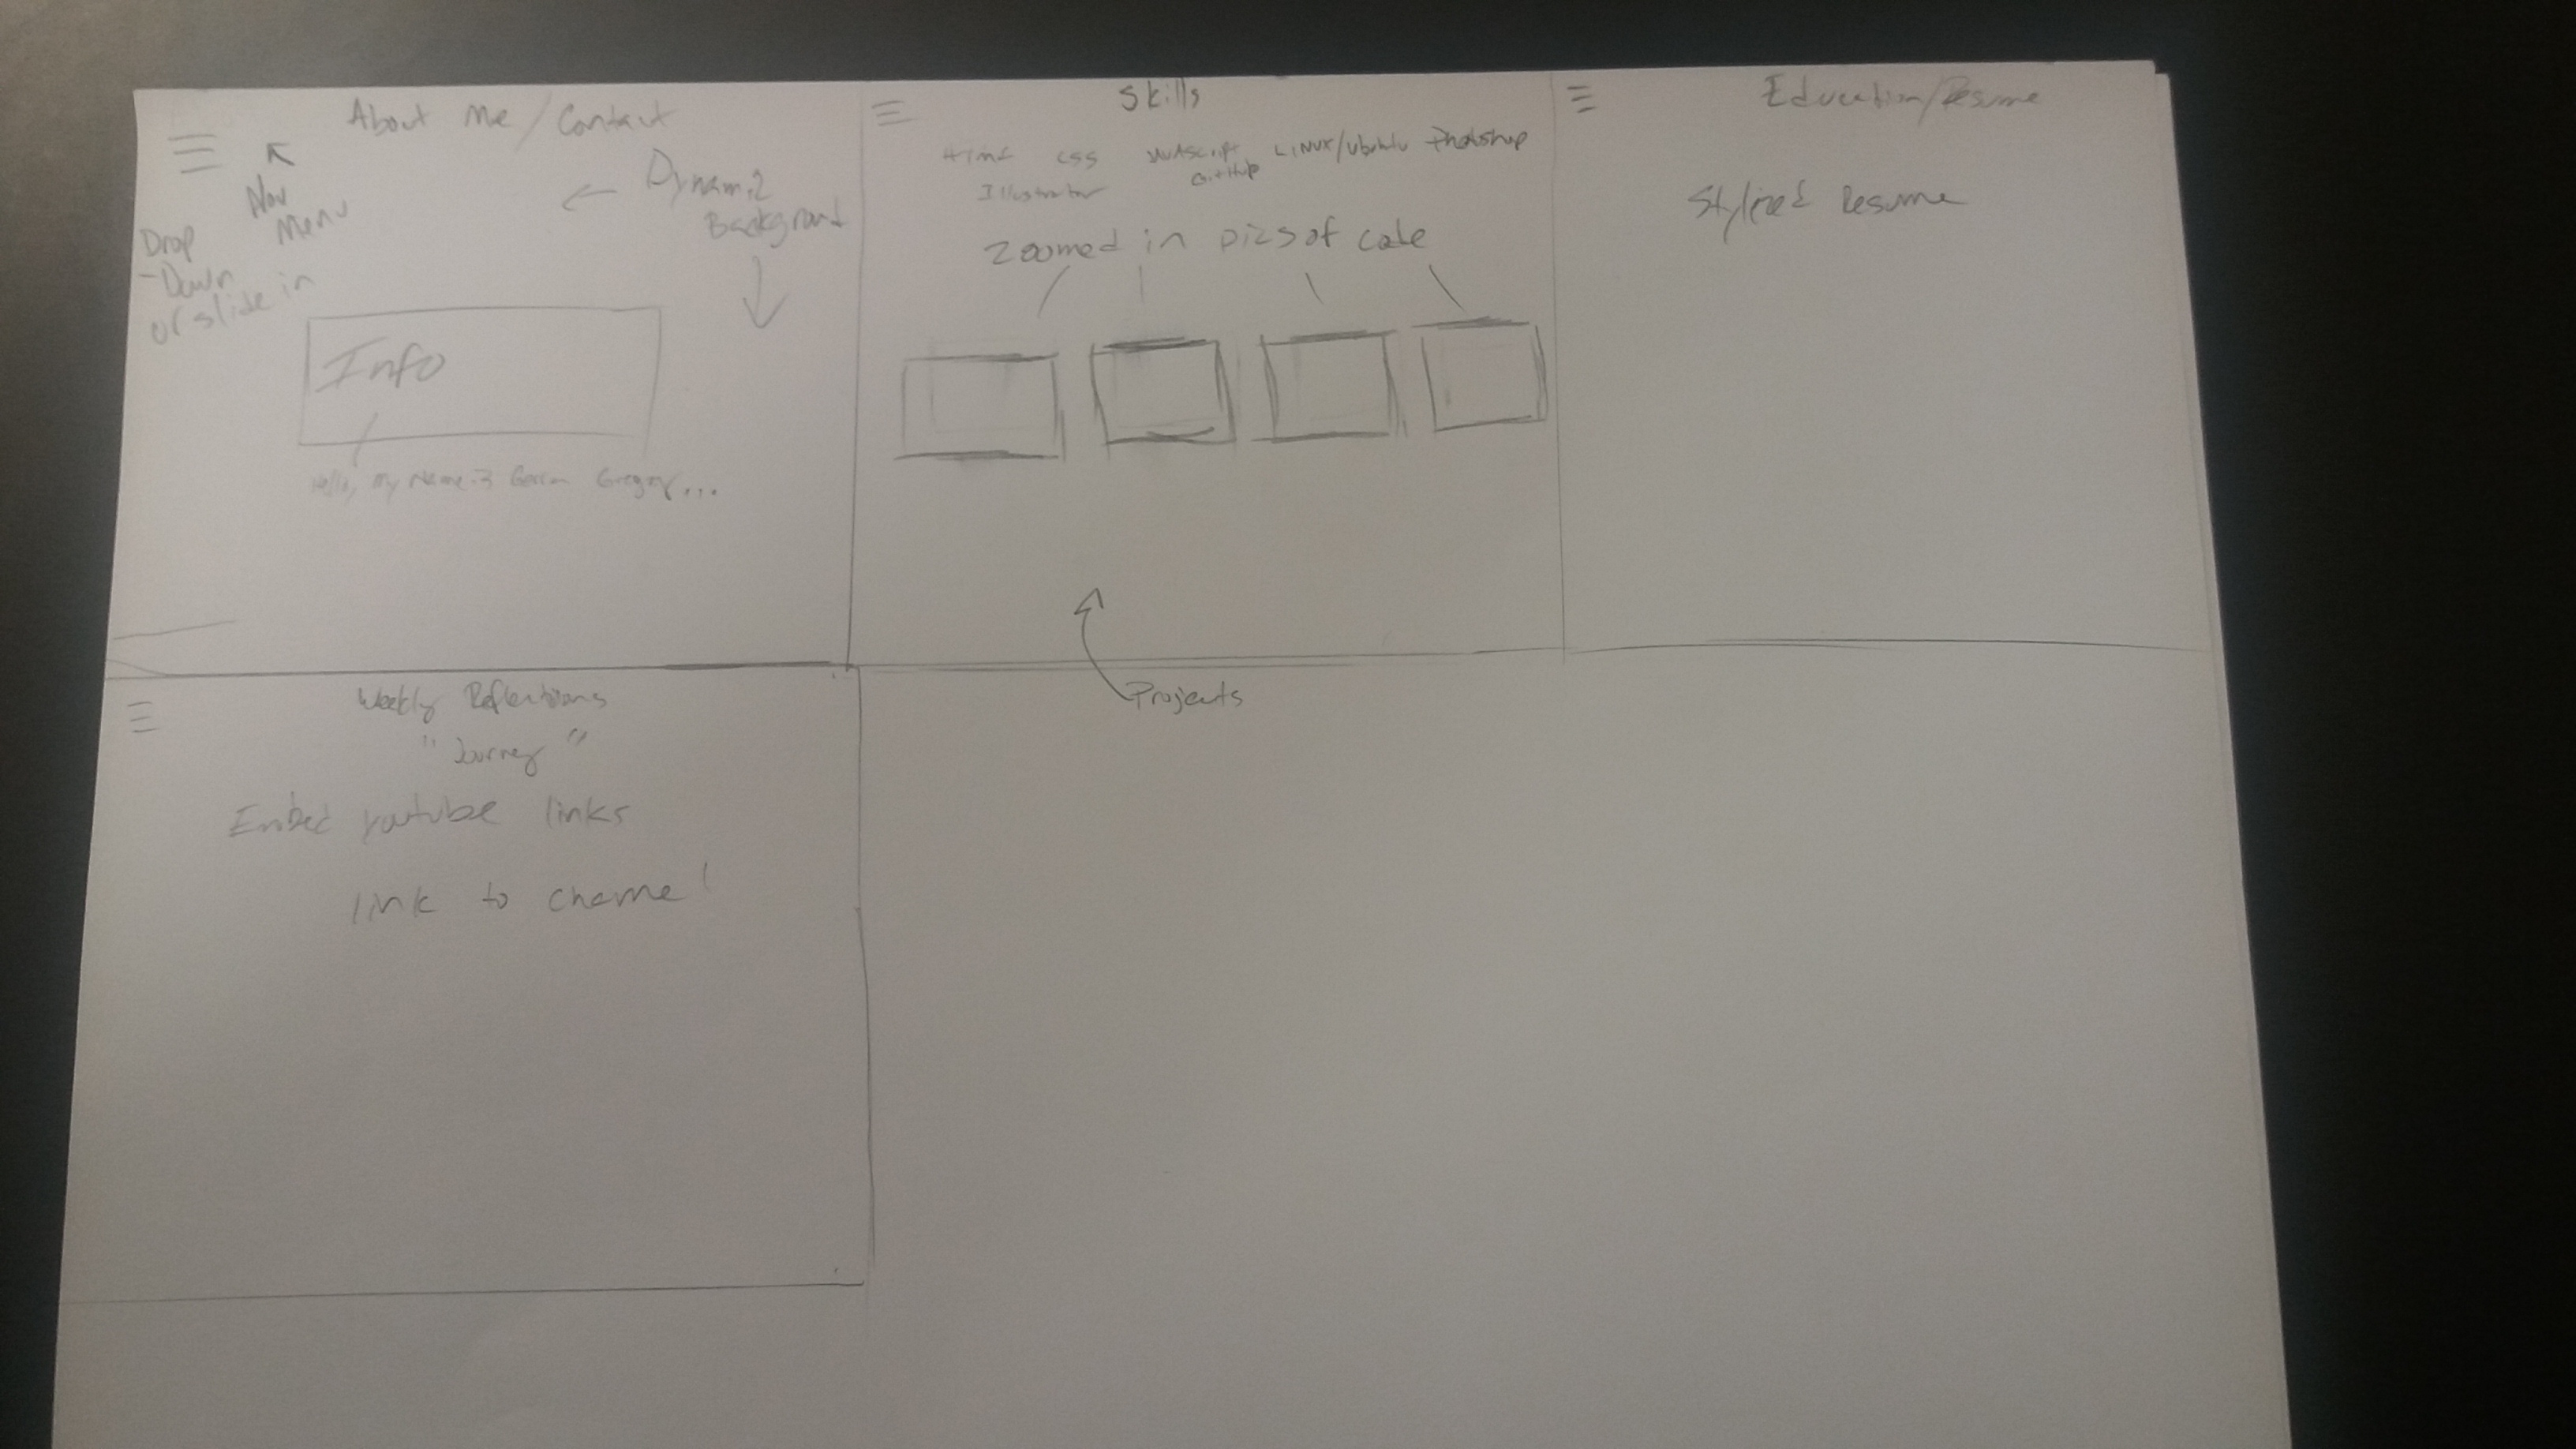 About Me / Contact
Nav
Menu
Drop
-Down
or slide in
Dynamic
Background
Info
Hello, my Name is Gregory...
Skills
Html CSS JavaScript LINUX/Ubuntu Photoshop
Illustrator GitHub
Zoomed in pics of code
Projects
Education/Resume
Stylized Resume
Weekly Reflections
"Journey"
Embed youtube links
link to channel